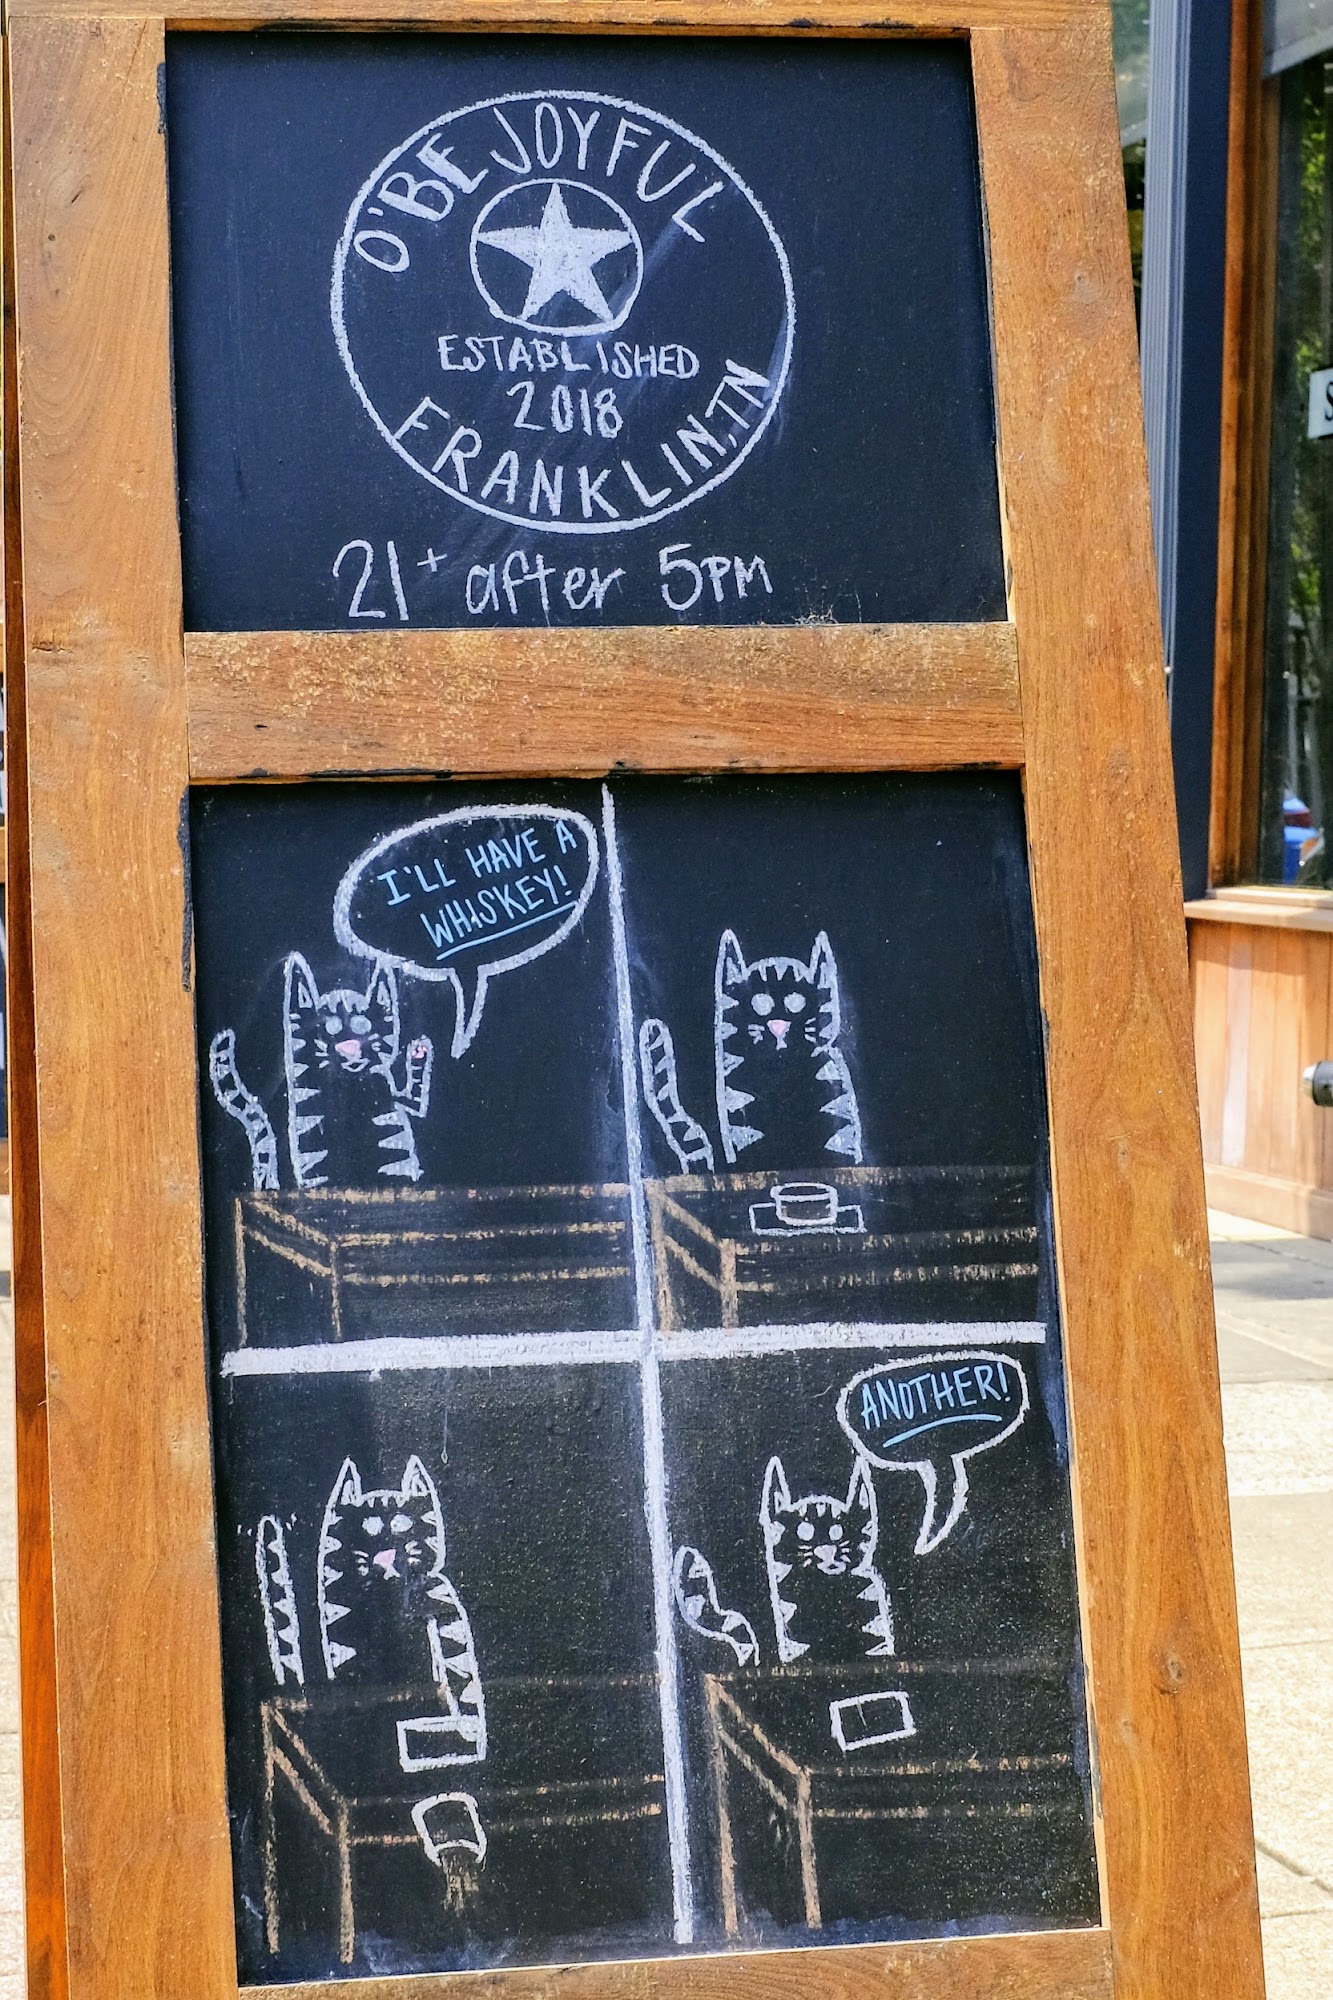 O'BE JOYFUL
ESTABLISHED
2018
FRANKLIN, TN
21+ after 5PM
I'LL HAVE A
WHISKEY!
ANOTHER!